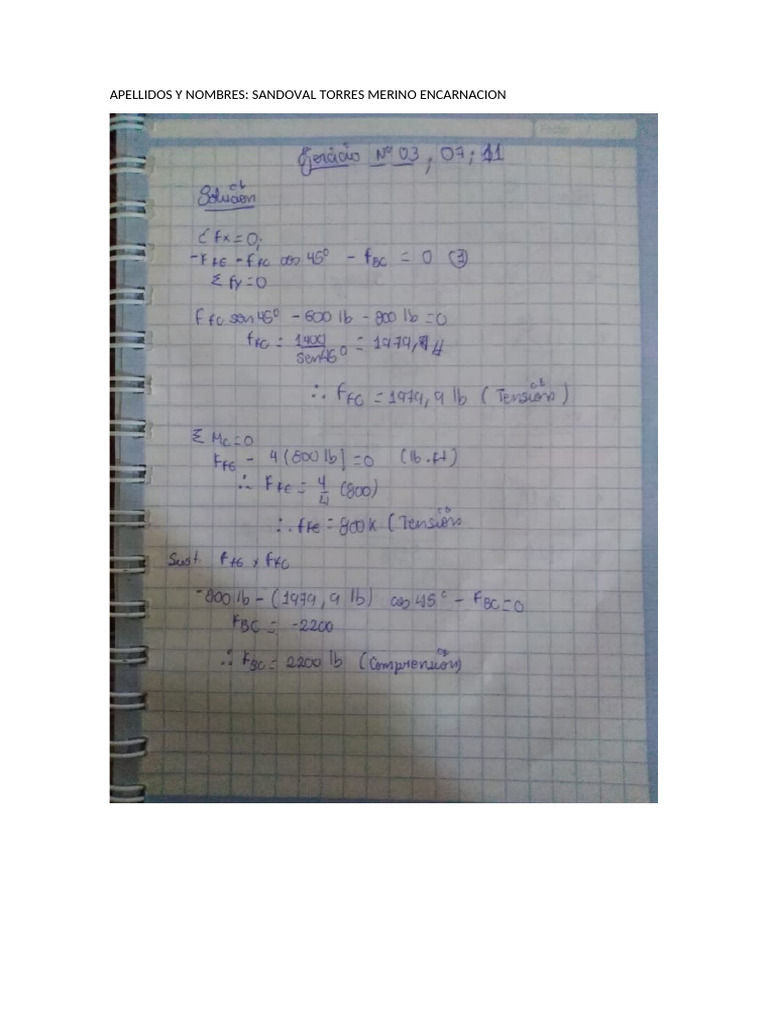 APELLIDOS Y NOMBRES: SANDOVAL TORRES MERINO ENCARNACION
Ejercicio Nº 03, 07; 11
Solución
Σ fx = 0;
-F_FE - F_FC cos 45° - f_BC = 0 ③
Σ fy = 0
F_FC sen 45° - 600 lb - 800 lb = 0
f_FC = 1400/sen45° = 1979,9 //
∴ F_FC = 1979,9 lb (Tensión)
Σ Mc = 0
F_FE - 4(800 lb) = 0 (lb.ft)
∴ F_FE = 4/4 (800)
∴ f_FE = 800 (Tensión
Sust. F_FE y F_FC
-800 lb - (1979,9 lb) cos 45° - F_BC = 0
F_BC = -2200
∴ F_BC = 2200 lb (Comprensión)